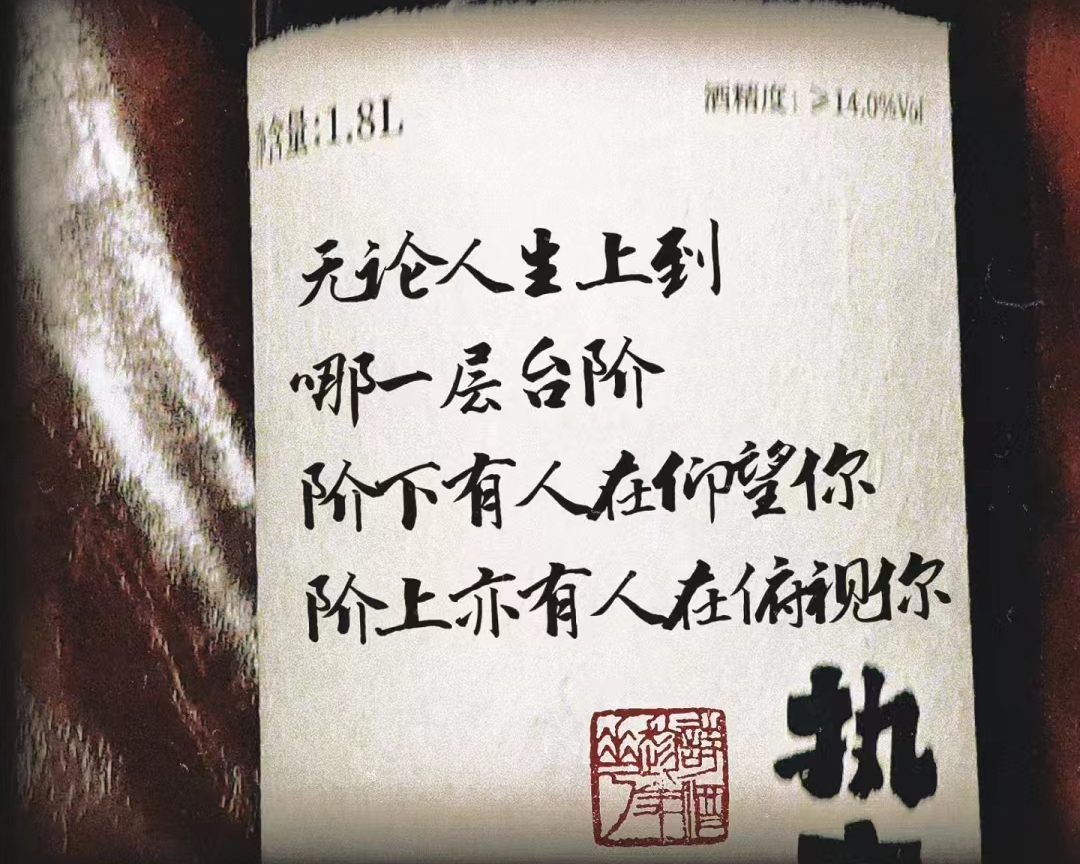 净含量:1.8L
酒精度：≥14.0%Vol
无论人生上到
哪一层台阶
阶下有人在仰望你
阶上亦有人在俯视你
执